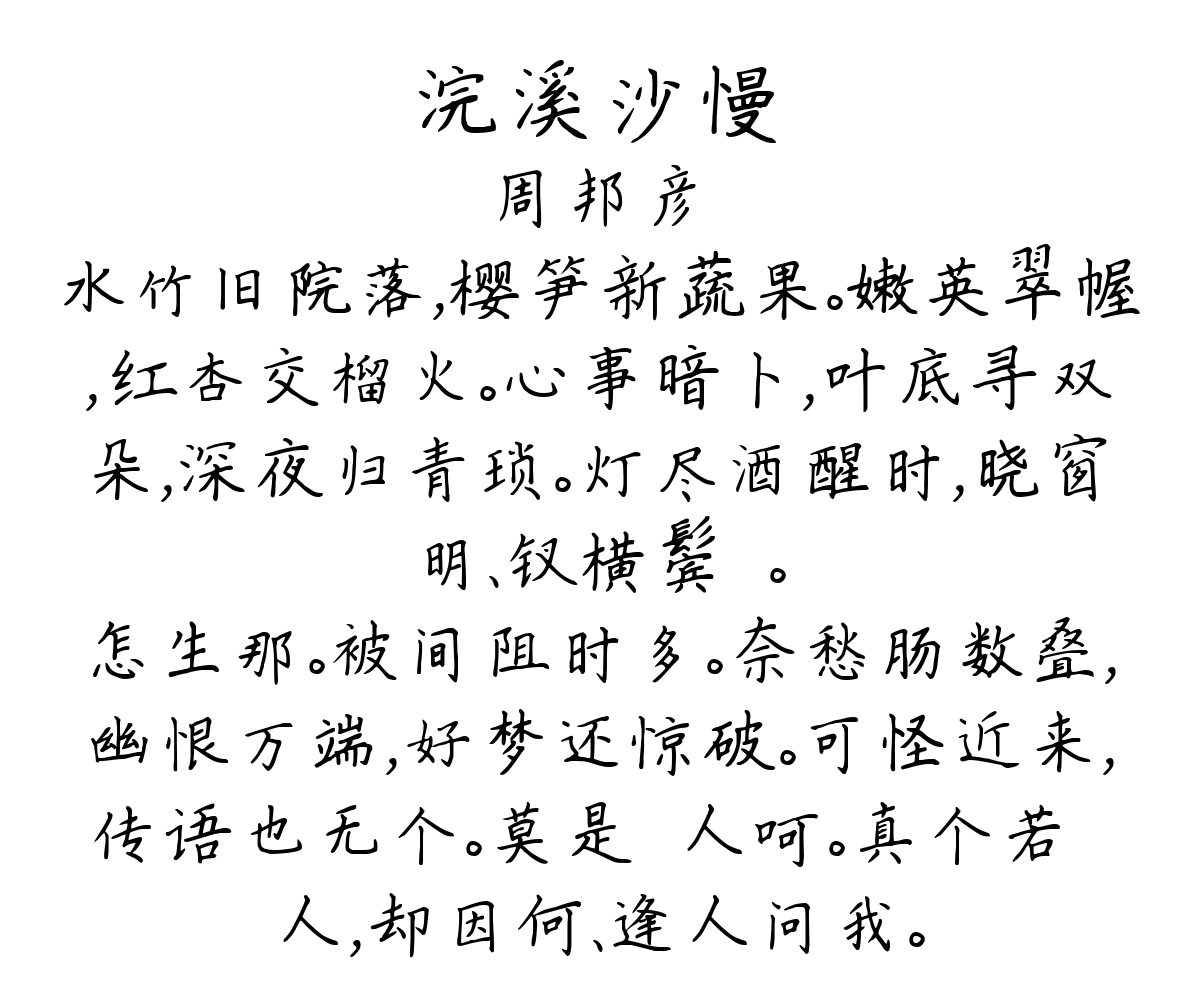 浣溪沙慢
周邦彦
水竹旧院落,樱笋新蔬果。嫩英翠幄
,红杏交榴火。心事暗卜,叶底寻双
朵,深夜归青琐。灯尽酒醒时,晓窗
明、钗横鬓 。
怎生那。被间阻时多。奈愁肠数叠,
幽恨万端,好梦还惊破。可怪近来,
传语也无个。莫是 人呵。真个若
人,却因何、逢人问我。